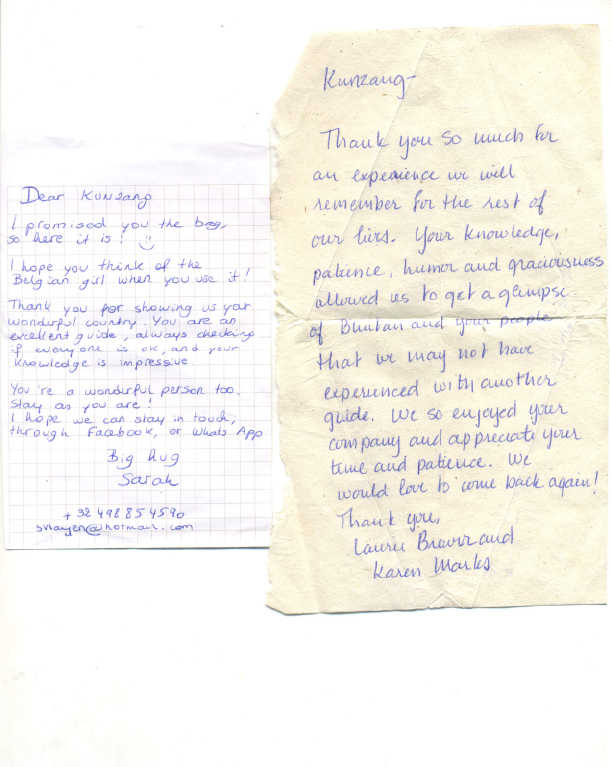 Dear Kunzang
I promised you the bag,
so here it is! :)
I hope you think of the
Belgian girl when you use it!
Thank you for showing us your
wonderful country. You are an
excellent guide, always checking
if everyone is ok, and your
knowledge is impressive
You're a wonderful person too.
Stay as you are!
I hope we can stay in touch,
through Facebook, or Whats App
Big hug
Sarah
+32 498 85 45 90
@hotmail.com
Kunzang-
Thank you so much for
an experience we will
remember for the rest of
our lives. Your knowledge,
patience, humor and graciousness
allowed us to get a glimpse
of Bhutan and your people
that we may not have
experienced with another
guide. We so enjoyed your
company and appreciate your
time and patience. We
would love to come back again!
Thank you,
Laurie Brewer and
Karen Marks